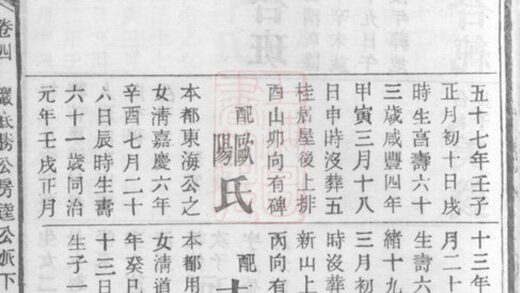 五十七年壬子
正月初十日戌
時生享壽六十
三歲咸豐四年
甲寅三月十八
日申時沒葬五
桂居屋後上排
酉山卯向有碑
配歐陽氏
本都東海公之
女淸嘉慶六年
辛酉七月二十
八日辰時生壽
六十一歲同治
元年壬戌正月
十三年
月二十
生壽六
緒十九
三月初
時沒葬
新山上
丙向有
配
本都用
女淸道
年癸巳
十三日
生子一
卷四
公房達公派下